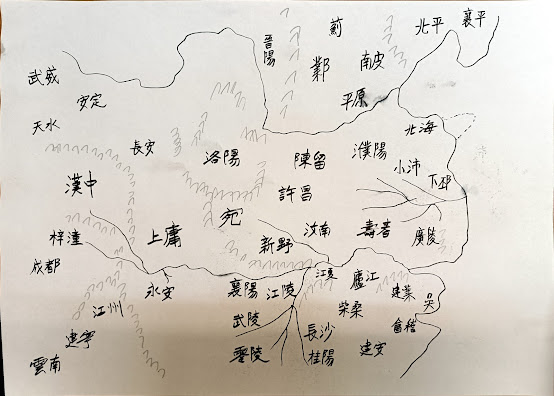 襄平
北平
薊
晉陽
鄴
南皮
平原
武威
安定
天水
長安
洛陽
陳留
濮陽
北海
小沛
下邳
許昌
漢中
宛
新野
汝南
壽春
廣陵
上庸
梓潼
成都
永安
江州
建寧
雲南
襄陽
江陵
江夏
廬江
柴桑
建業
吳
會稽
武陵
零陵
長沙
桂陽
建安